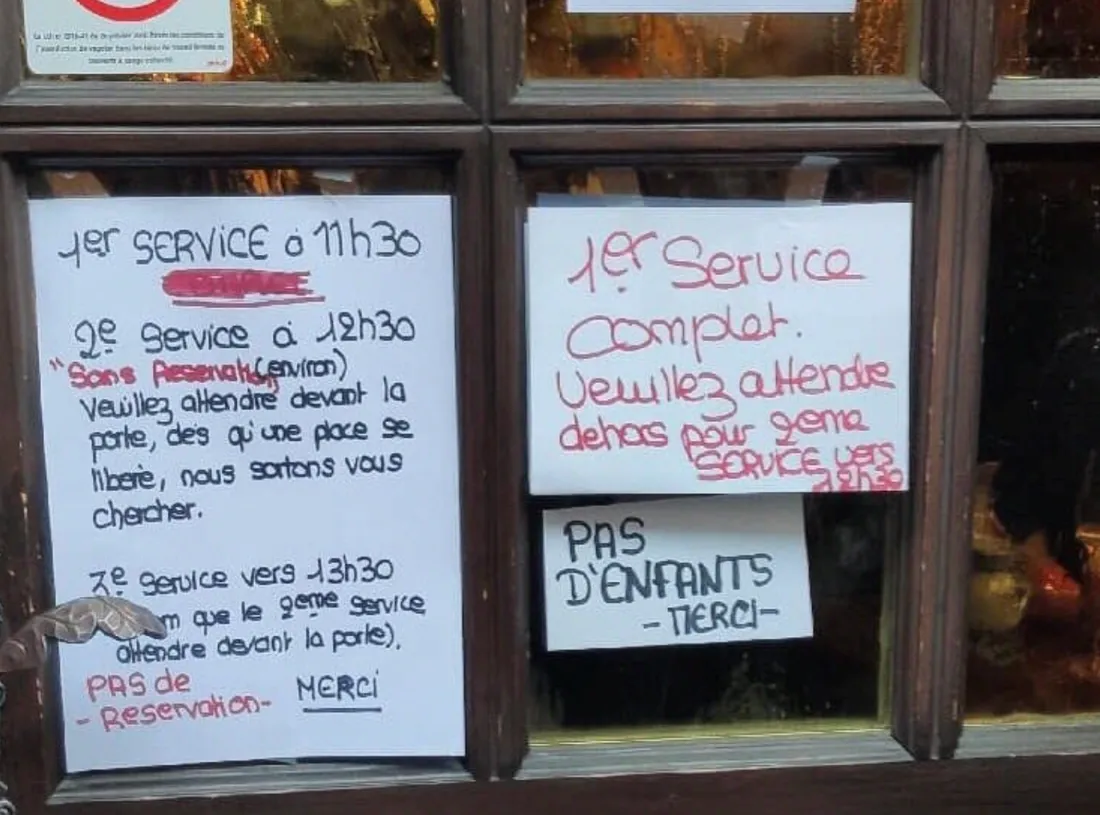 1er SERVICE à 11h30
2e Service à 12h30
"Sans Reservation (environ)
Veuillez attendre devant la
porte, dès qu'une place se
libère, nous sortons vous
chercher.
3e Service vers 13h30
que le 2eme Service
attendre devant la porte).
PAS de MERCI
- Reservation-
1er Service
complet.
Veuillez attendre
dehors pour 2eme
SERVICE vers
12h30
PAS
D'ENFANTS
- MERCI -